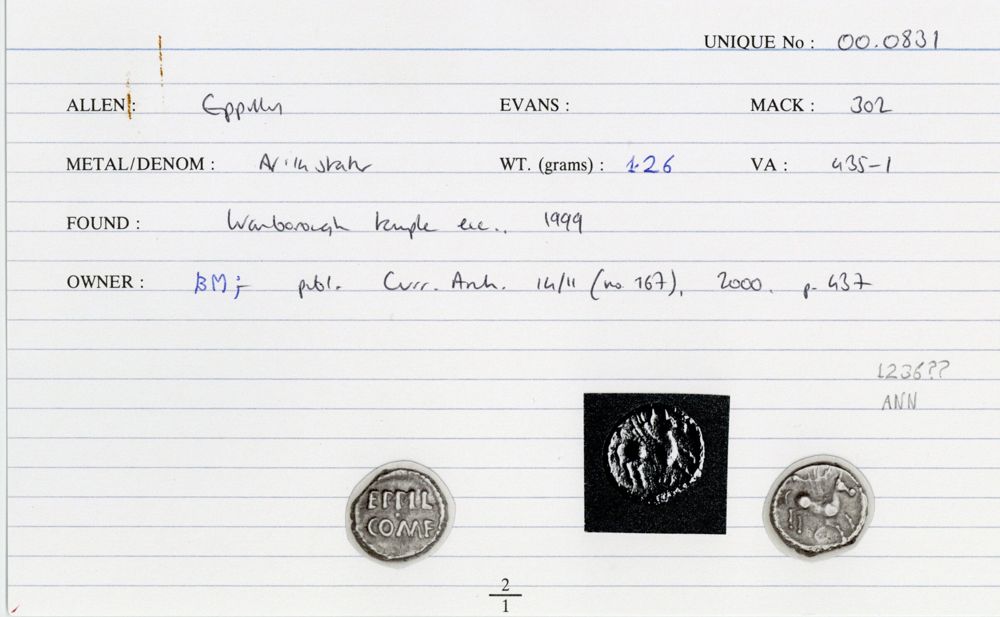 UNIQUE No : 00.0831
ALLEN : Eppillus EVANS : MACK : 302
METAL/DENOM : AV 1/4 stater WT. (grams) : 1.26 VA : 435-1
FOUND : Wanborough temple exc., 1999
OWNER : BM; publ. Curr. Arch. 14/11 (no 167), 2000. p. 437
1236??
ANN
EPPIL
COMF
2
1